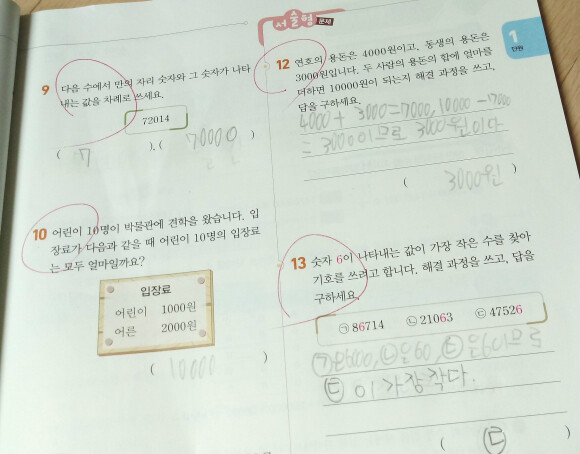 서술형 문제
1
단원
9 다음 수에서 만의 자리 숫자와 그 숫자가 나타
내는 값을 차례로 쓰세요.
72014
( 7 ), ( 70000 )
10 어린이 10명이 박물관에 견학을 왔습니다. 입
장료가 다음과 같을 때 어린이 10명의 입장료
는 모두 얼마일까요?
입장료
어린이 1000원
어른 2000원
( 10000 )
12 연호의 용돈은 4000원이고, 동생의 용돈은
3000원입니다. 두 사람의 용돈의 합에 얼마를
더하면 10000원이 되는지 해결 과정을 쓰고,
답을 구하세요.
4000 + 3000 = 7000, 10000 -
= 3000이므로 3000원이다
( 3000원 )
13 숫자 6이 나타내는 값이 가장 작은 수를 찾아
기호를 쓰려고 합니다. 해결 과정을 쓰고, 답을
구하세요.
㉠ 86714 ㉡ 21063 ㉢ 47526
㉠ ㉡ 은 60, ㉢ 은 6이므로
㉢이 가장 작다.
( ㉢ )